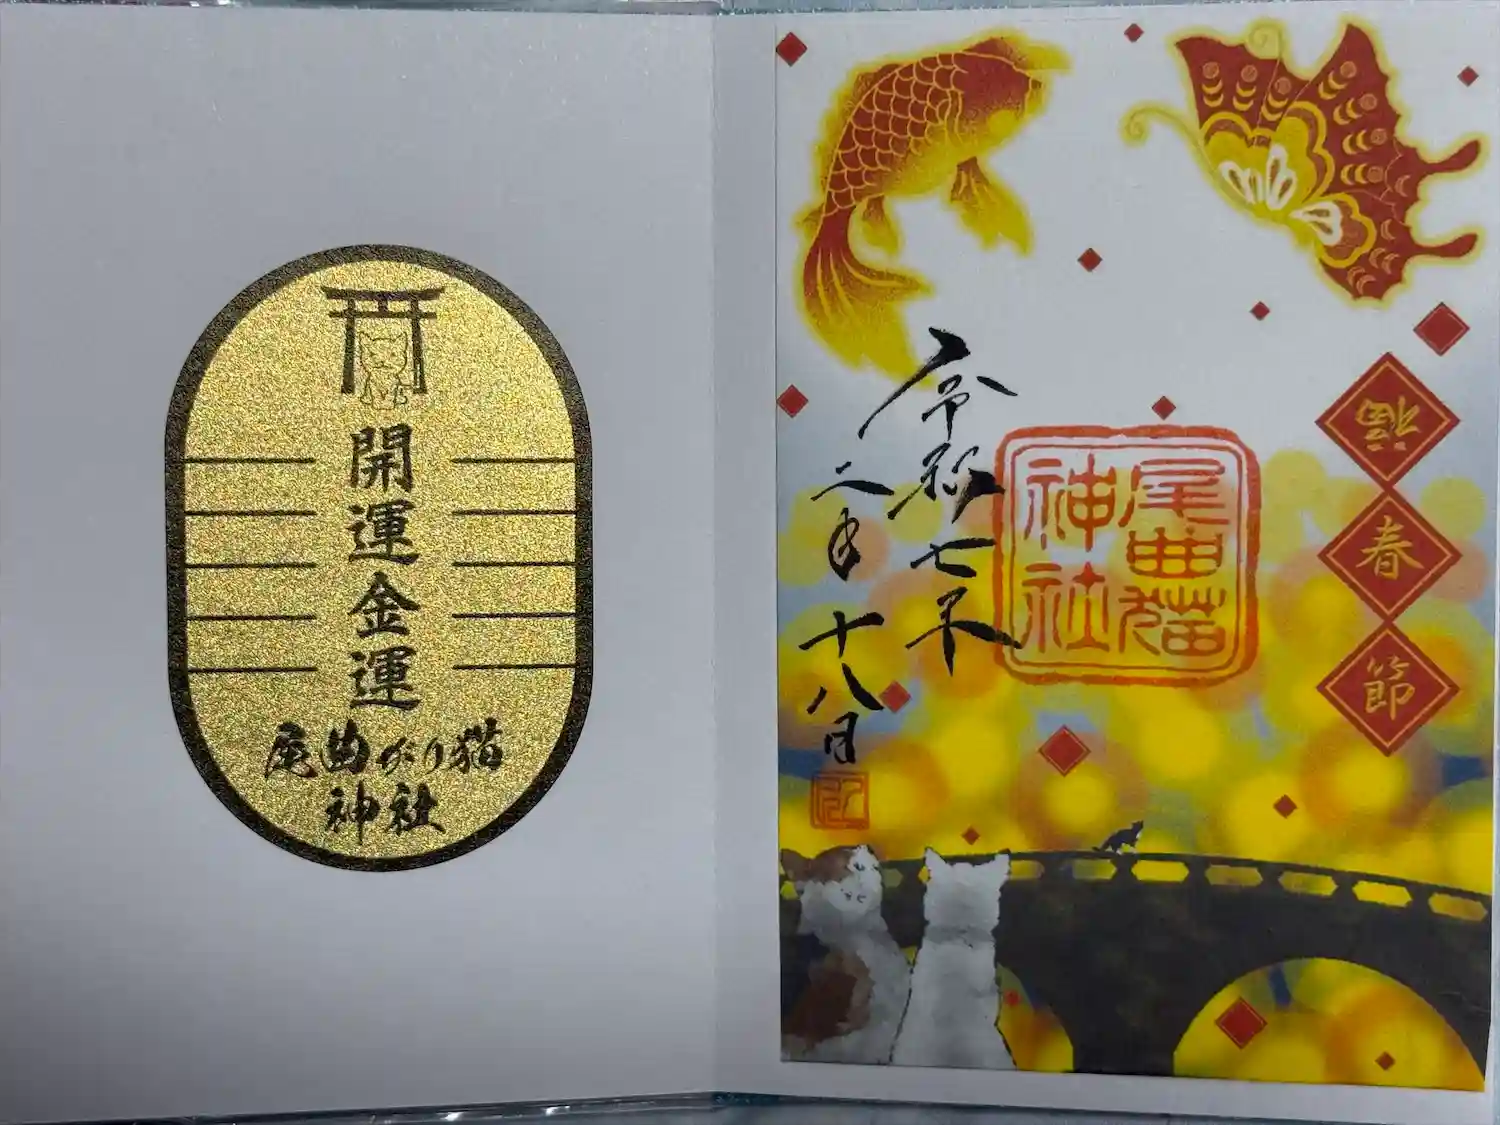 開運金運
尾曲がり猫
神社
福
春
節
尾曲猫
神社
令和七年
二月十八日